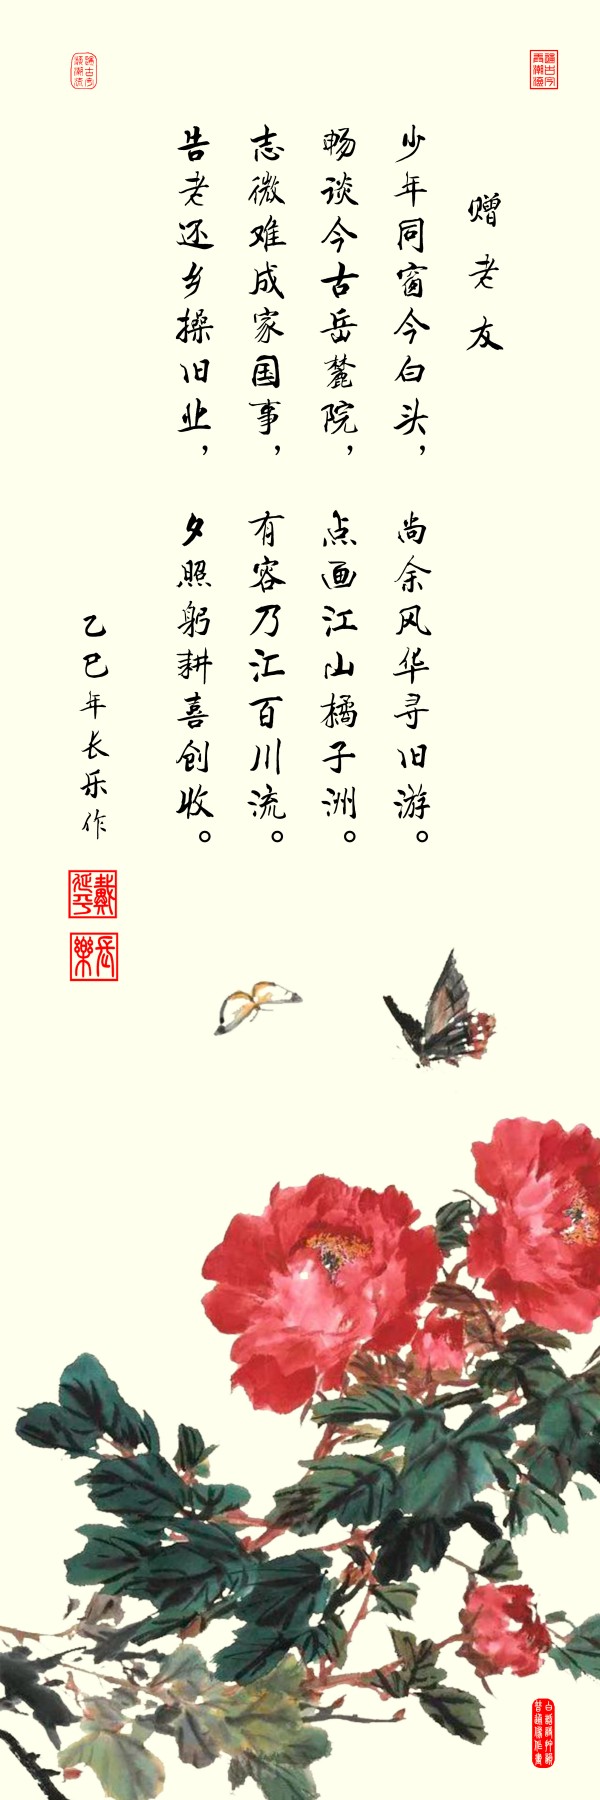 赠老友
少年同窗今白头，尚余风华寻旧游。
畅谈今古岳麓院，点画江山橘子洲。
志微难成家国事，有容乃汇百川流。
告老还乡操旧业，夕照躬耕喜创收。
乙巳年长乐作
戴延平
长樂